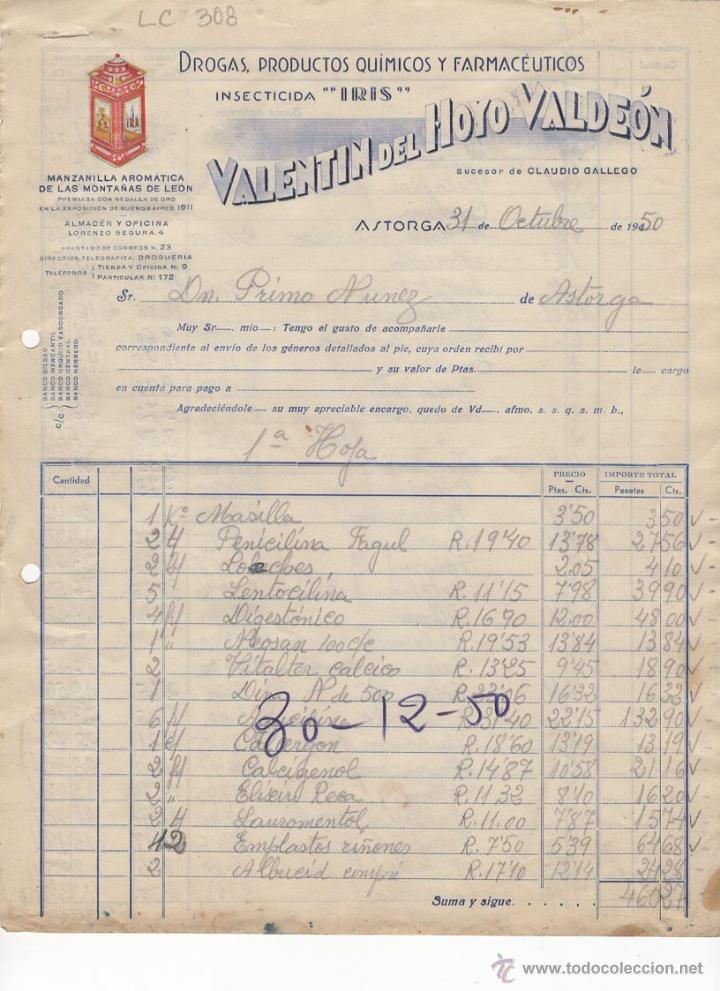 LC 308
DROGAS, PRODUCTOS QUÍMICOS Y FARMACÉUTICOS
INSECTICIDA ""IRIS""
VALENTIN DEL HOYO VALDEÓN
Sucesor de CLAUDIO GALLEGO
MANZANILLA AROMÁTICA
DE LAS MONTAÑAS DE LEÓN
PREMIADA CON MEDALLA DE ORO
EN LA EXPOSICIÓN DE BUENOS AIRES 1911
ALMACÉN Y OFICINA
LORENZO SEGURA, 4
APARTADO DE CORREOS N. 23
DIRECCIÓN TELEGRÁFICA: DROGUERIA
TELÉFONOS { TIENDA Y OFICINA N.º 9
PARTICULAR N.º 172
ASTORGA 31 de Octubre de 1950
Sr. Dn. Primo Nunez de Astorga
Muy Sr. mío: Tengo el gusto de acompañarle
correspondiente al envío de los géneros detallados al pie, cuya orden recibí por
y su valor de Ptas. le cargo
en cuenta para pago a
Agradeciéndole su muy apreciable encargo, quedo de Vd. afmo. s. s. q. s. m. b.,
c/c { BANCO BILBAO
BANCO MERCANTIL
BANCO URQUIJO VASCONGADO
BANCO CENTRAL
BANCO HERRERO
1ª Hoja
Cantidad PRECIO IMPORTE TOTAL
Ptas. Cts. Pesetas Cts.
1 Kº Masilla 3'50 3 50
2 Penicilina Fagul R. 19'40 13'78 27 56
2 Loeches, 2,05 4 10
5 Lentocilina R. 11'15 7'98 39 90
4 Digestónico R. 16 90 12.00 48 00
1 " Neosan 100 c/c R. 19'53 13'84 13 84
2 " Vitalter calcico R. 13'25 9'45 18 90
1 N de 500 16'32 16 32
6 22'15 132 90
1 R. 18'60 13'19 13 19
2 Calcigenol R. 14'87 10'58 21 16
2 " Elixir R. 11 32 8'10 16 20
2 Lauromentol, R. 11.00 7'87 15 74
12 Emplastos riñones R. 7'50 5'39 64 68
2 Albucid R. 17'10 12'14 24 28
30-12-50
Suma y sigue. . . . . . 460 27
www.todocoleccion.net